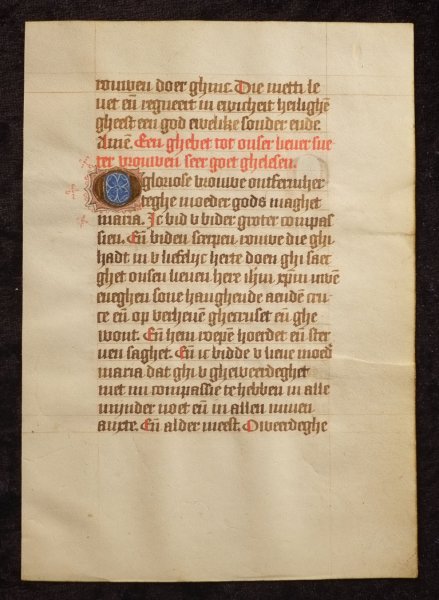 rouwen doer ghinc. Die metti le
uet eñ regneert in ewicheit heilighē
gheest een god ewelike sonder ende
Amē. Een ghebet tot onser lieuer sue
ter vrouwen seer goet ghelesen.
O gloriose vrouwe ontfermher
teghe moeder gods maghet
maria. Ic bid v bider groter compas
sien. Eñ biden scerpen rouwe die ghi
hadt in v lieflijc herte doen ghi saet
ghet onsen lieuen here ihm xpm uwē
eneghen sone hanghende aendē cru
ce eñ op verheuē ghecruset eñ ghe
wont. Eñ hem roepē hoerdet eñ ster
uen saghet. Eñ ic bidde v lieue moed
maria dat ghi v gheweerdeghet
met mi compassie te hebben in alle
mijnder noet eñ in allen minen
anxte. Eñ alder meest. O weerdeghe